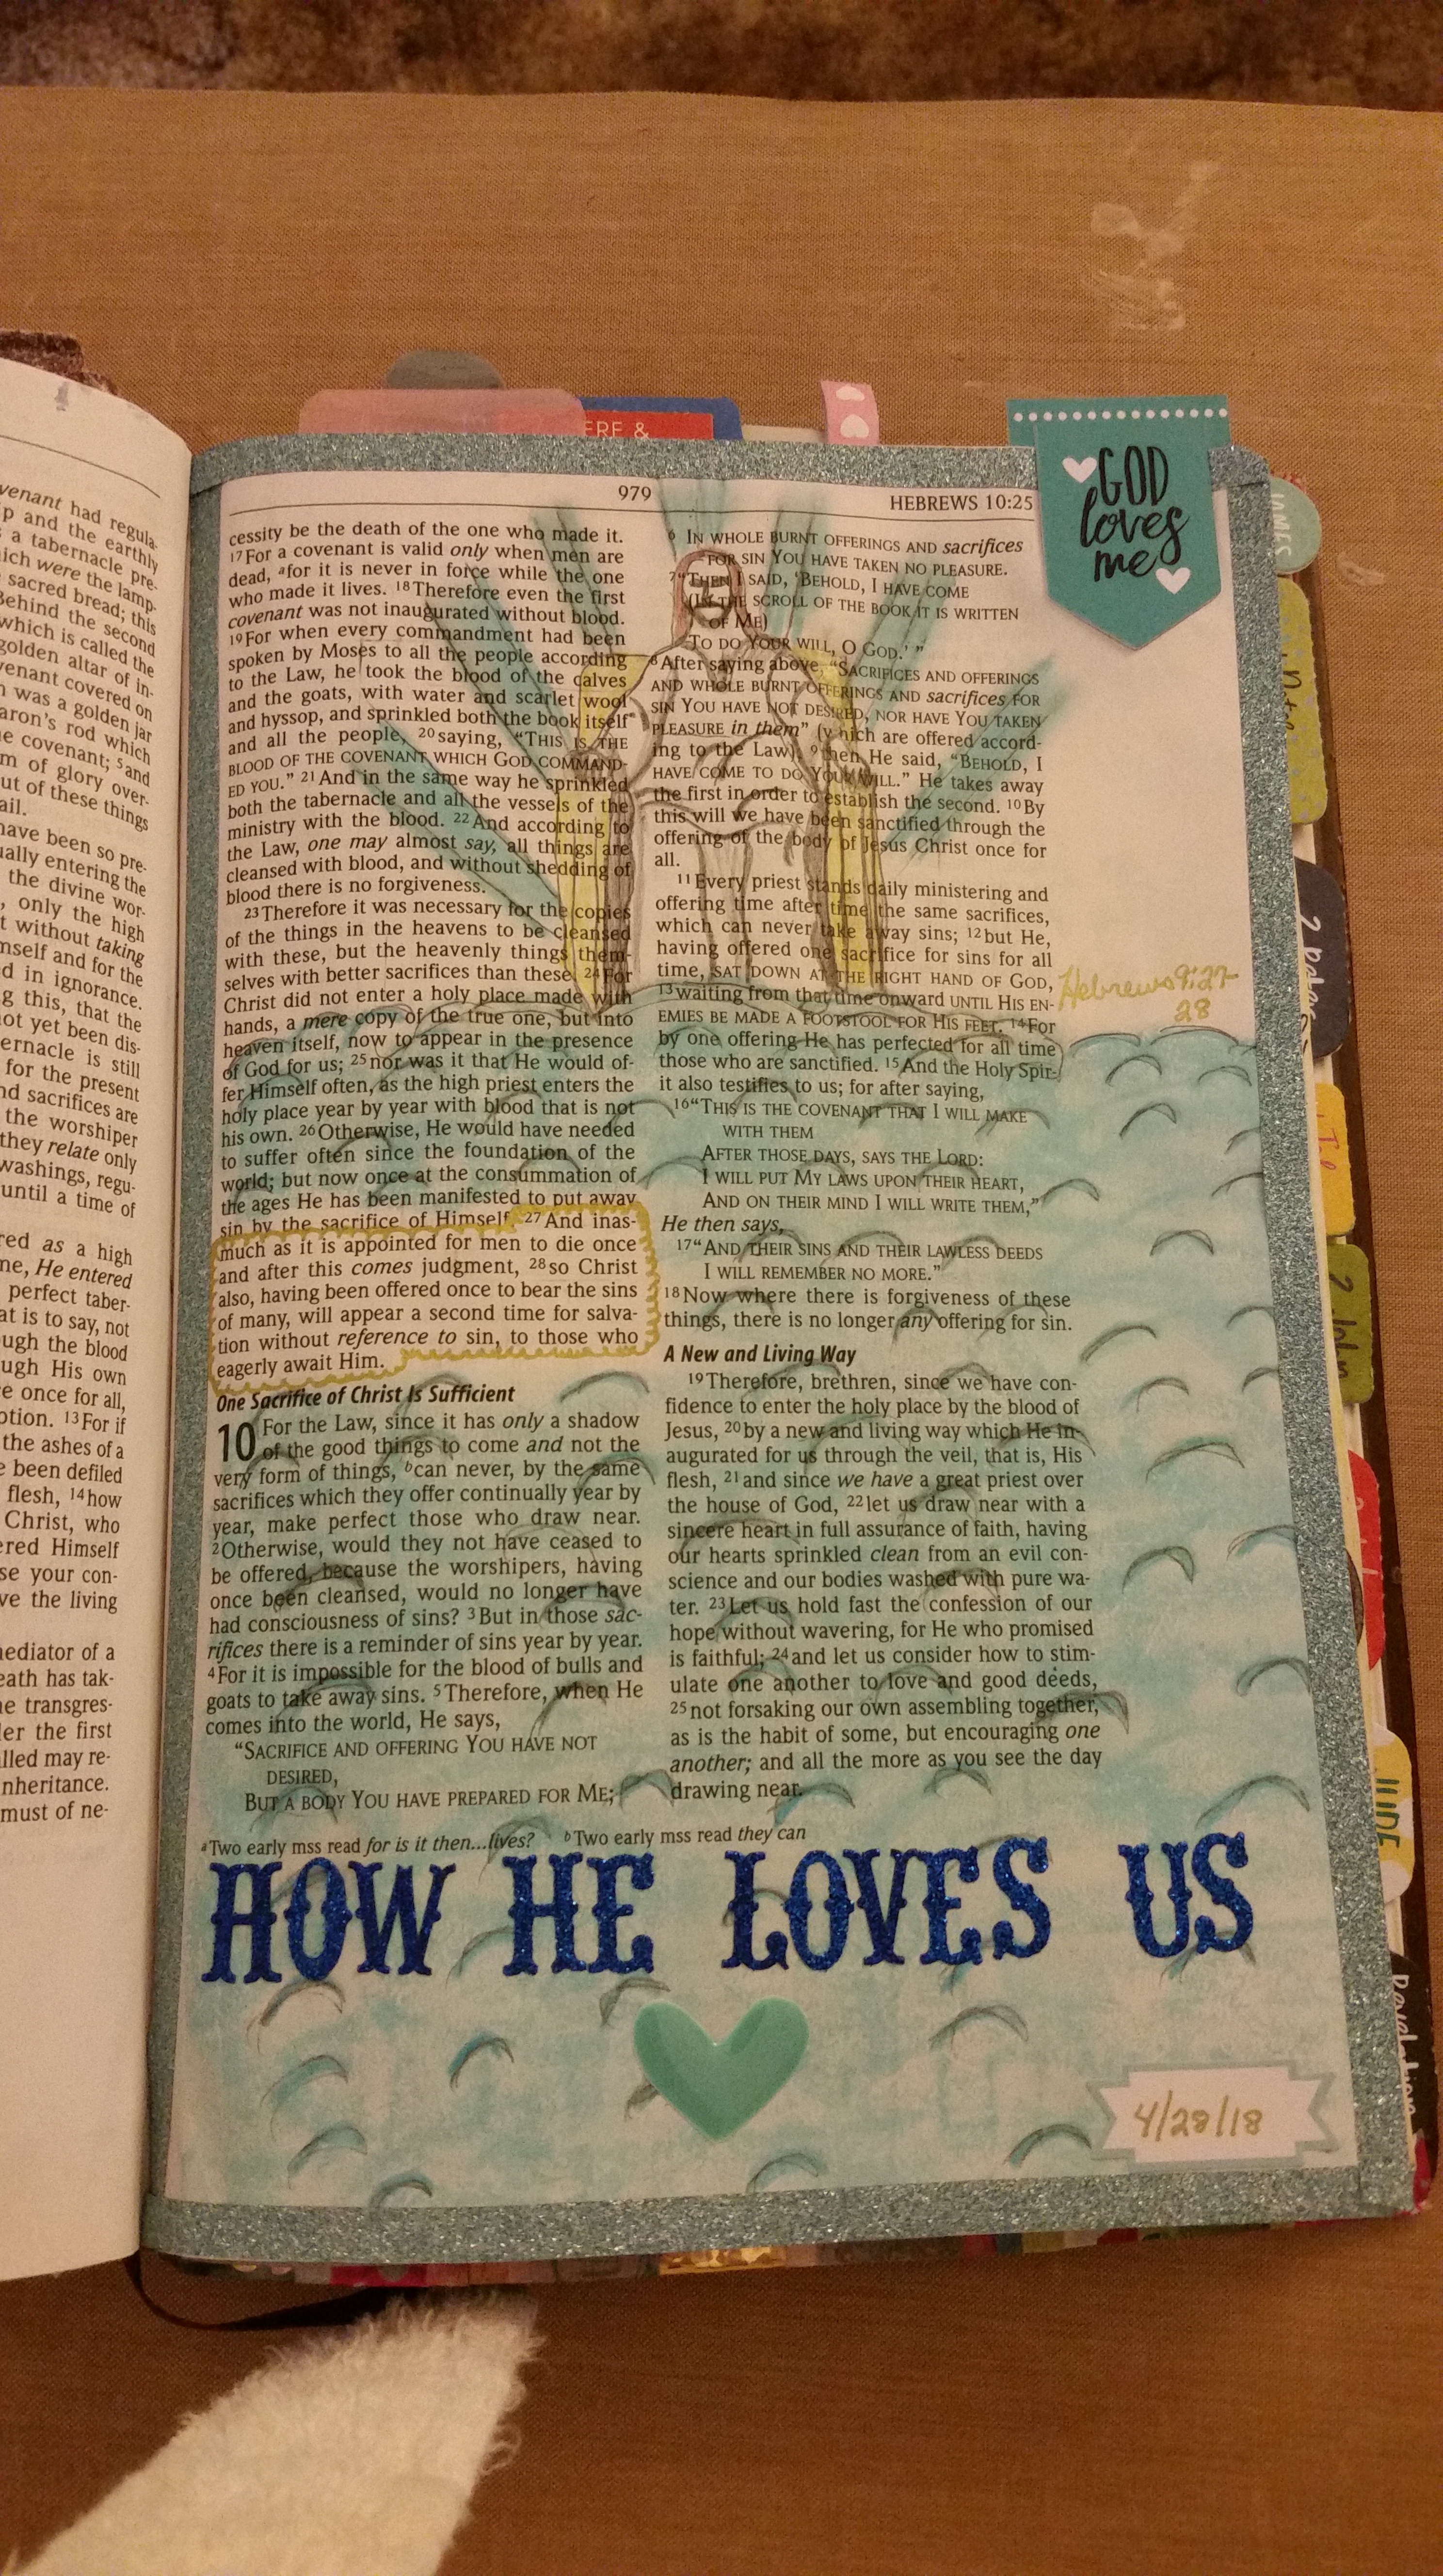 venant had regula-
p and the earthly
s a tabernacle pre-
ich were the lamp-
sacred bread; this
Behind the second
which is called the
golden altar of in-
venant covered on
n was a golden jar
aron's rod which
e covenant; 5and
m of glory over-
ut of these things
ail.
have been so pre-
ually entering the
the divine wor-
, only the high
t without taking
mself and for the
d in ignorance.
g this, that the
ot yet been dis-
ernacle is still
for the present
nd sacrifices are
the worshiper
they relate only
washings, regu-
until a time of
red as a high
ne, He entered
perfect taber-
at is to say, not
ugh the blood
ugh His own
e once for all,
ption. 13For if
the ashes of a
e been defiled
flesh, 14how
Christ, who
ered Himself
se your con-
ve the living
nediator of a
eath has tak-
he transgres-
ler the first
lled may re-
nheritance.
must of ne-
ERE &
979
HEBREWS 10:25
GOD
loves
me
cessity be the death of the one who made it.
17For a covenant is valid only when men are
dead, afor it is never in force while the one
who made it lives. 18Therefore even the first
covenant was not inaugurated without blood.
19For when every commandment had been
spoken by Moses to all the people according
to the Law, he took the blood of the calves
and the goats, with water and scarlet wool
and hyssop, and sprinkled both the book itself
and all the people, 20saying, “THIS IS THE
BLOOD OF THE COVENANT WHICH GOD COMMAND-
ED YOU.” 21And in the same way he sprinkled
both the tabernacle and all the vessels of the
ministry with the blood. 22And according to
the Law, one may almost say, all things are
cleansed with blood, and without shedding of
blood there is no forgiveness.
23Therefore it was necessary for the copies
of the things in the heavens to be cleansed
with these, but the heavenly things them-
selves with better sacrifices than these. 24For
Christ did not enter a holy place made with
hands, a mere copy of the true one, but into
heaven itself, now to appear in the presence
of God for us; 25nor was it that He would of-
fer Himself often, as the high priest enters the
holy place year by year with blood that is not
his own. 26Otherwise, He would have needed
to suffer often since the foundation of the
world; but now once at the consummation of
the ages He has been manifested to put away
sin by the sacrifice of Himself. 27And inas-
much as it is appointed for men to die once
and after this comes judgment, 28so Christ
also, having been offered once to bear the sins
of many, will appear a second time for salva-
tion without reference to sin, to those who
eagerly await Him.
One Sacrifice of Christ Is Sufficient
10 For the Law, since it has only a shadow
of the good things to come and not the
very form of things, bcan never, by the same
sacrifices which they offer continually year by
year, make perfect those who draw near.
2Otherwise, would they not have ceased to
be offered, because the worshipers, having
once been cleansed, would no longer have
had consciousness of sins? 3But in those sac-
rifices there is a reminder of sins year by year.
4For it is impossible for the blood of bulls and
goats to take away sins. 5Therefore, when He
comes into the world, He says,
“SACRIFICE AND OFFERING YOU HAVE NOT
DESIRED,
BUT A BODY YOU HAVE PREPARED FOR ME;
6 IN WHOLE BURNT OFFERINGS AND sacrifices
FOR SIN YOU HAVE TAKEN NO PLEASURE.
7“THEN I SAID, ‘BEHOLD, I HAVE COME
(IN THE SCROLL OF THE BOOK IT IS WRITTEN
OF ME)
TO DO YOUR WILL, O GOD.’ ”
8After saying above, “SACRIFICES AND OFFERINGS
AND WHOLE BURNT OFFERINGS AND sacrifices FOR
SIN YOU HAVE NOT DESIRED, NOR HAVE YOU TAKEN
PLEASURE in them” (which are offered accord-
ing to the Law), 9then He said, “BEHOLD, I
HAVE COME TO DO YOUR WILL.” He takes away
the first in order to establish the second. 10By
this will we have been sanctified through the
offering of the body of Jesus Christ once for
all.
11Every priest stands daily ministering and
offering time after time the same sacrifices,
which can never take away sins; 12but He,
having offered one sacrifice for sins for all
time, SAT DOWN AT THE RIGHT HAND OF GOD,
13waiting from that time onward UNTIL HIS EN-
EMIES BE MADE A FOOTSTOOL FOR HIS FEET. 14For
by one offering He has perfected for all time
those who are sanctified. 15And the Holy Spir-
it also testifies to us; for after saying,
16“THIS IS THE COVENANT THAT I WILL MAKE
WITH THEM
AFTER THOSE DAYS, SAYS THE LORD:
I WILL PUT MY LAWS UPON THEIR HEART,
AND ON THEIR MIND I WILL WRITE THEM,”
He then says,
17“AND THEIR SINS AND THEIR LAWLESS DEEDS
I WILL REMEMBER NO MORE.”
18Now where there is forgiveness of these
things, there is no longer any offering for sin.
A New and Living Way
19Therefore, brethren, since we have con-
fidence to enter the holy place by the blood of
Jesus, 20by a new and living way which He in-
augurated for us through the veil, that is, His
flesh, 21and since we have a great priest over
the house of God, 22let us draw near with a
sincere heart in full assurance of faith, having
our hearts sprinkled clean from an evil con-
science and our bodies washed with pure wa-
ter. 23Let us hold fast the confession of our
hope without wavering, for He who promised
is faithful; 24and let us consider how to stim-
ulate one another to love and good deeds,
25not forsaking our own assembling together,
as is the habit of some, but encouraging one
another; and all the more as you see the day
drawing near.
Hebrews 9:27-
28
aTwo early mss read for is it then...lives? bTwo early mss read they can
HOW HE LOVES US
4/28/18
JAMES
2 John
JUDE
Revelation